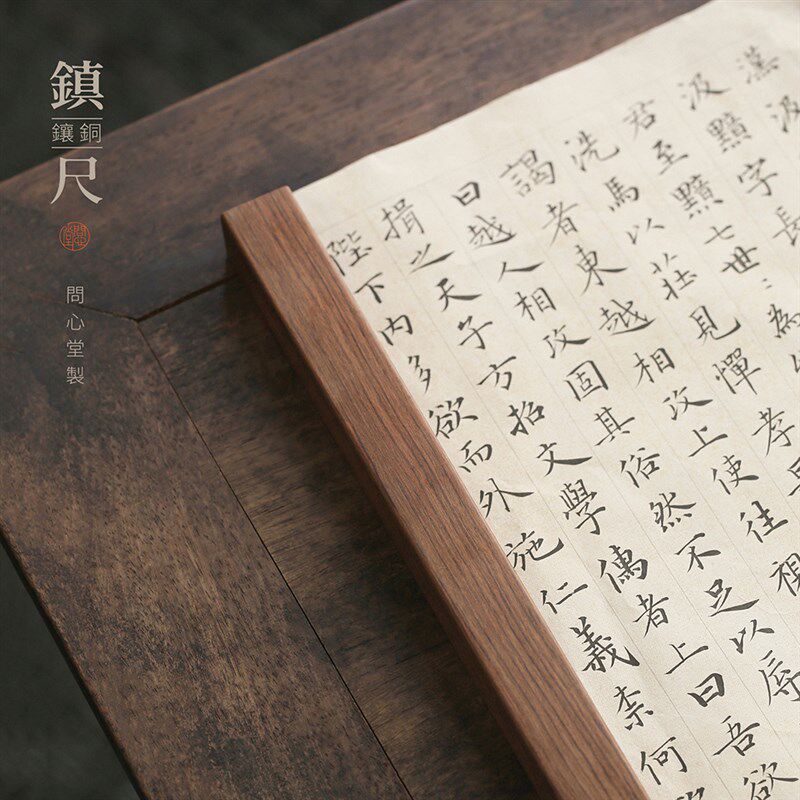 鎮尺
鑲銅
問心堂製
漢汲
汲黯字長
君至黯七世為
洗馬以莊見憚孝
謁者東越相攻上使往視
曰越人相攻固其俗然不足以辱
揖之天子方招文學儒者上曰吾欲
陛下內多欲而外施仁義柰何